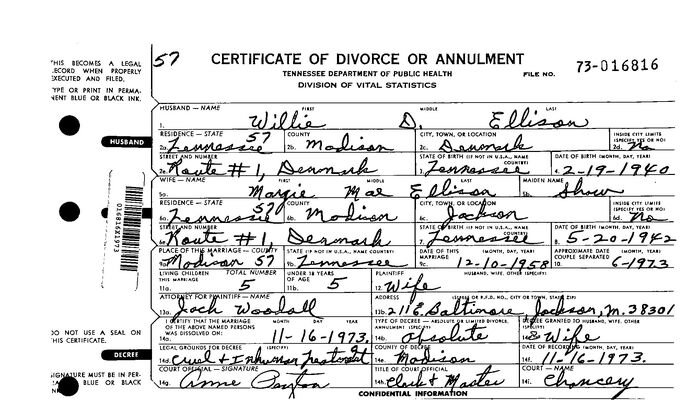 THIS BECOMES A LEGAL
RECORD WHEN PROPERLY
EXECUTED AND FILED.
TYPE OR PRINT IN PERMA-
NENT BLUE OR BLACK INK.
57 CERTIFICATE OF DIVORCE OR ANNULMENT
TENNESSEE DEPARTMENT OF PUBLIC HEALTH FILE NO. 73-016816
DIVISION OF VITAL STATISTICS
HUSBAND — NAME FIRST MIDDLE LAST
1. Willie D. Ellison
HUSBAND
RESIDENCE — STATE COUNTY CITY, TOWN, OR LOCATION INSIDE CITY LIMITS (SPECIFY YES OR NO)
2a. Tennessee 57 2b. Madison 2c. Denmark 2d. No
STREET AND NUMBER STATE OF BIRTH (IF NOT IN U.S.A., NAME COUNTRY) DATE OF BIRTH (MONTH, DAY, YEAR)
2e. Route #1, Denmark 3. Tennessee 4. 2-19-1940
WIFE — NAME FIRST MIDDLE LAST MAIDEN NAME
5a. Margie Mae Ellison 5b. Shaw
RESIDENCE — STATE COUNTY CITY, TOWN, OR LOCATION INSIDE CITY LIMITS (SPECIFY YES OR NO)
6a. Tennessee 57 6b. Madison 6c. Jackson 6d. No
STREET AND NUMBER STATE OF BIRTH (IF NOT IN U.S.A., NAME COUNTRY) DATE OF BIRTH (MONTH, DAY, YEAR)
6e. Route #1 Denmark 7. Tennessee 8. 5-20-1942
PLACE OF THIS MARRIAGE — COUNTY STATE (IF NOT IN U.S.A., NAME COUNTRY) DATE OF THIS MARRIAGE (MONTH, DAY, YEAR) APPROXIMATE DATE COUPLE SEPARATED (MONTH, DAY, YEAR)
9a. Madison 57 9b. Tennessee 9c. 12-10-1958 10. 6-1973
LIVING CHILDREN THIS MARRIAGE TOTAL NUMBER UNDER 18 YEARS OF AGE PLAINTIFF HUSBAND, WIFE, OTHER (SPECIFY)
11a. 5 11b. 5 12. Wife
ATTORNEY FOR PLAINTIFF — NAME ADDRESS (STREET OR R.F.D. NO., CITY OR TOWN, STATE, ZIP)
13a. Jack Woodall 13b. 211 E. Baltimore, Jackson, Tn. 38301
I CERTIFY THAT THE MARRIAGE OF THE ABOVE NAMED PERSONS WAS DISSOLVED ON: MONTH DAY YEAR TYPE OF DECREE — ABSOLUTE OR LIMITED DIVORCE, ANNULMENT (SPECIFY) DECREE GRANTED TO HUSBAND, WIFE, OTHER (SPECIFY)
14a. 11-16-1973. 14b. Absolute 14c. Wife
DO NOT USE A SEAL ON
THIS CERTIFICATE.
DECREE
LEGAL GROUNDS FOR DECREE (SPECIFY) COUNTY OF DECREE DATE OF RECORDING (MONTH, DAY, YEAR)
14d. Cruel & Inhuman Treatment 14e. Madison 14f. 11-16-1973.
COURT OFFICIAL — SIGNATURE TITLE OF COURT OFFICIAL COURT — NAME
14g. Anne Paxton 14h. Clerk & Master 14i. Chancery
SIGNATURE MUST BE IN PER-
BLUE OR BLACK
CONFIDENTIAL INFORMATION